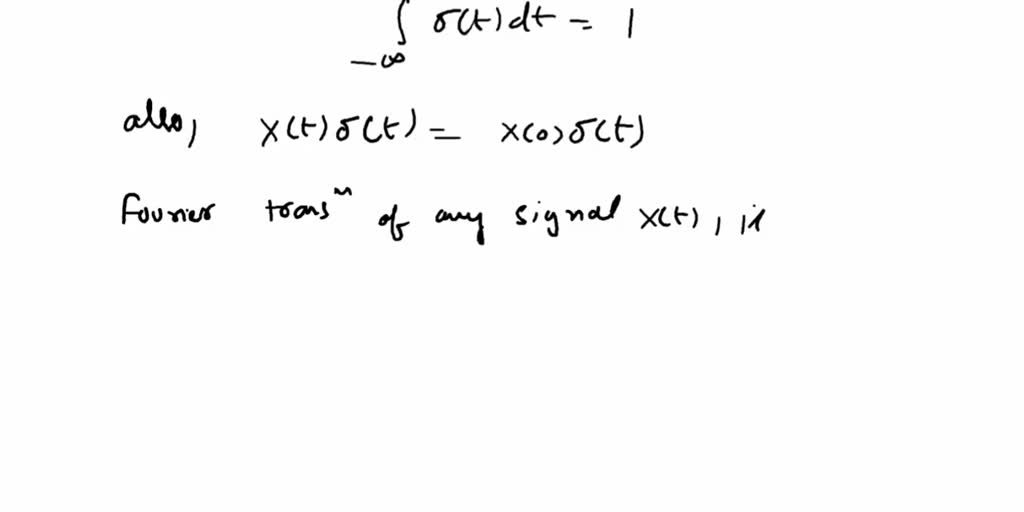 ∫ δ(t) dt = 1
-∞
also, x(t) δ(t) = x(0) δ(t)
Fourier transᵐ of any signal x(t), is